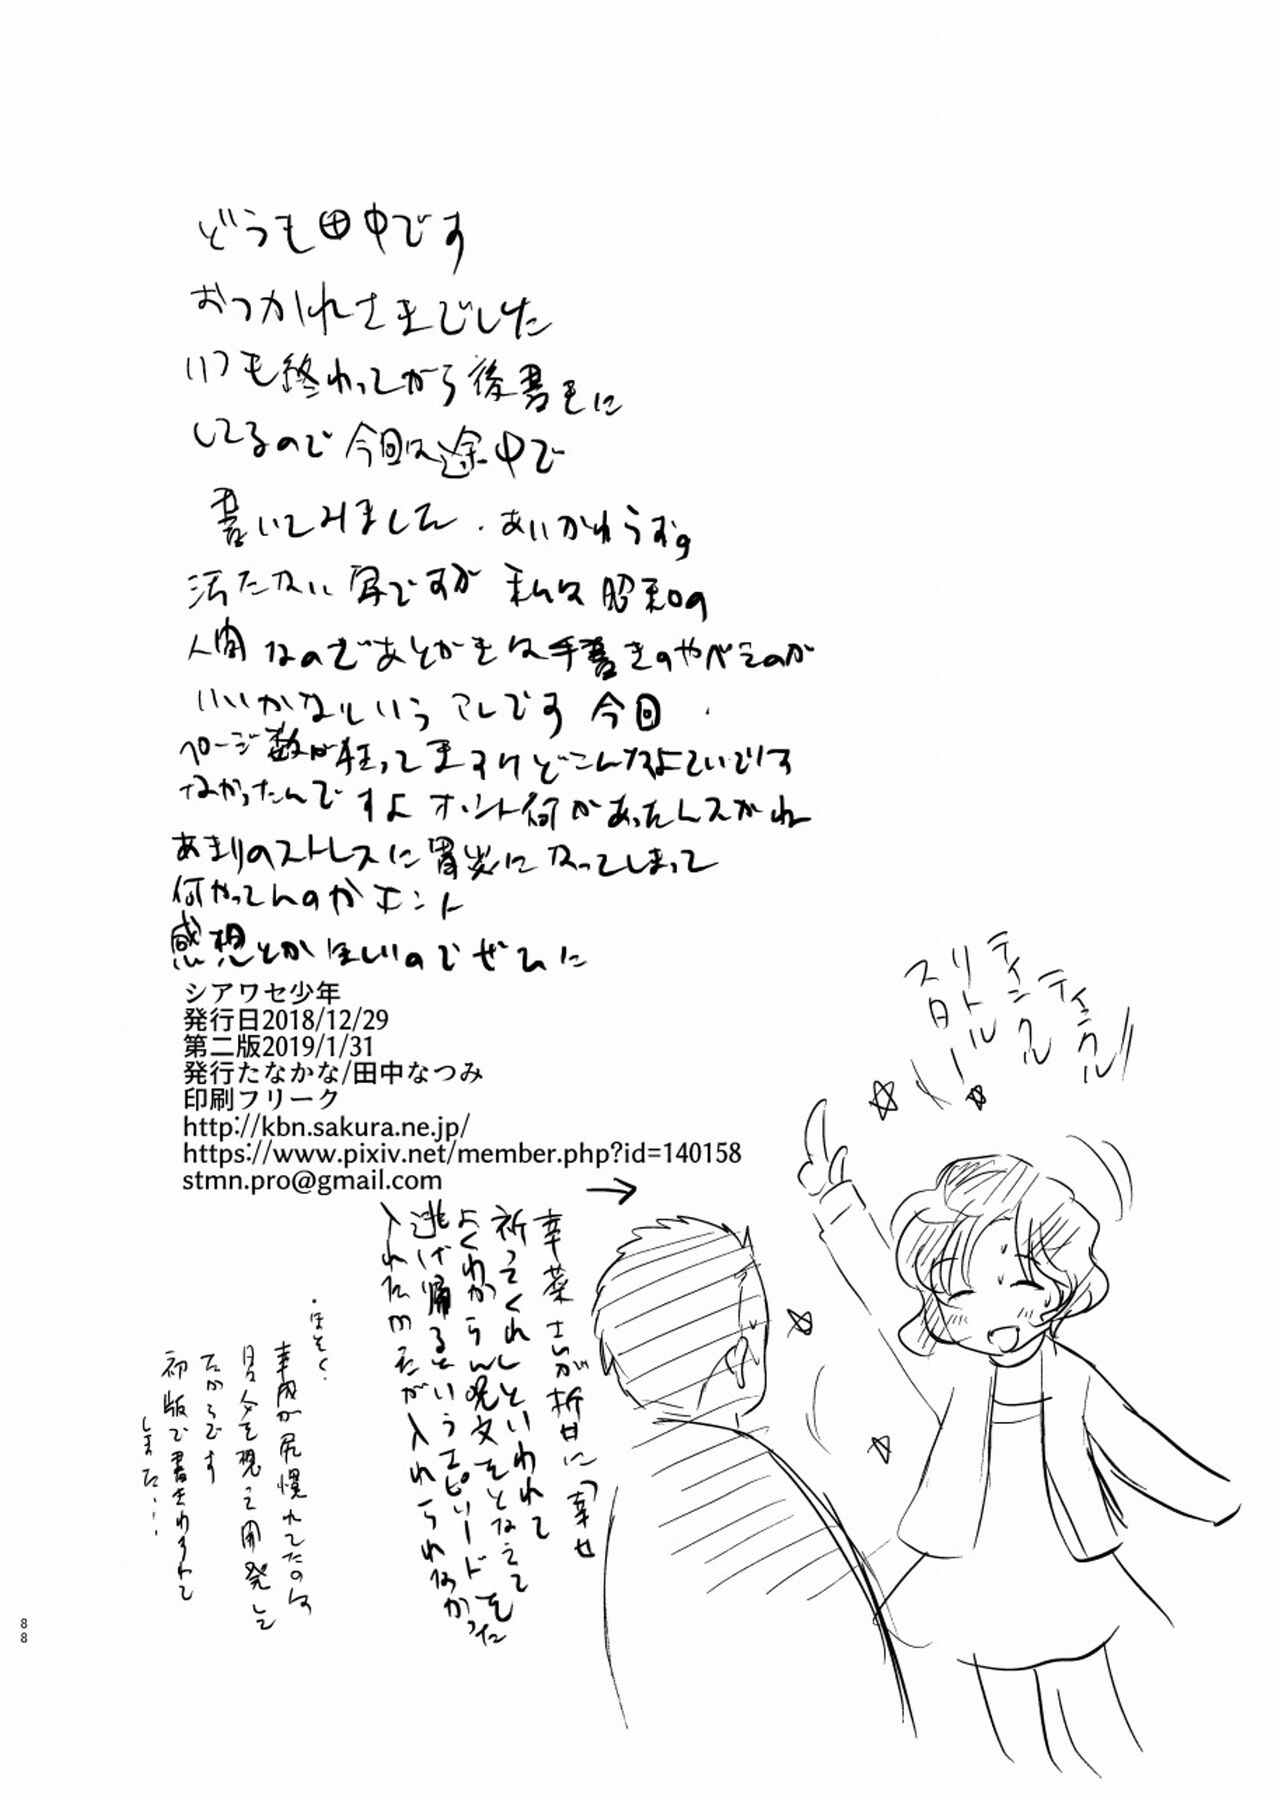 どうも田中です
おつかれさまでした
いつも終わってから後書きに
してるので今回は途中で
書いてみました.あいかわらずの
汚たない字ですが私は昭和の
人間なのであとがきは手書きのやべえのが
いいかなというアレです今回
ページ数が狂ってますけどこんなよていです
なかったんですよホント何があったんスかね
あまりのストレスに胃炎になってしまって
何やってんのかホント
感想とかほしいのでぜひに
シアワセ少年
発行日2018/12/29
第二版2019/1/31
発行たなかな/田中なつみ
印刷フリーク
http://kbn.sakura.ne.jp/
https://www.pixiv.net/member.php?id=140158
stmn.pro@gmail.com
→
ティンクルティンクル
リトル
スター
幸菜さんが折日に「幸せ
祈ってくれ」といわれて
よくわからん呪文をとなえて
逃げ帰るというエピソードを
入れたかったが入れられなかった
・ほそく.
幸成が尻慣れてたのは
日夕を想って開発して
たからです
初版で書きわすれて
しまった…
88